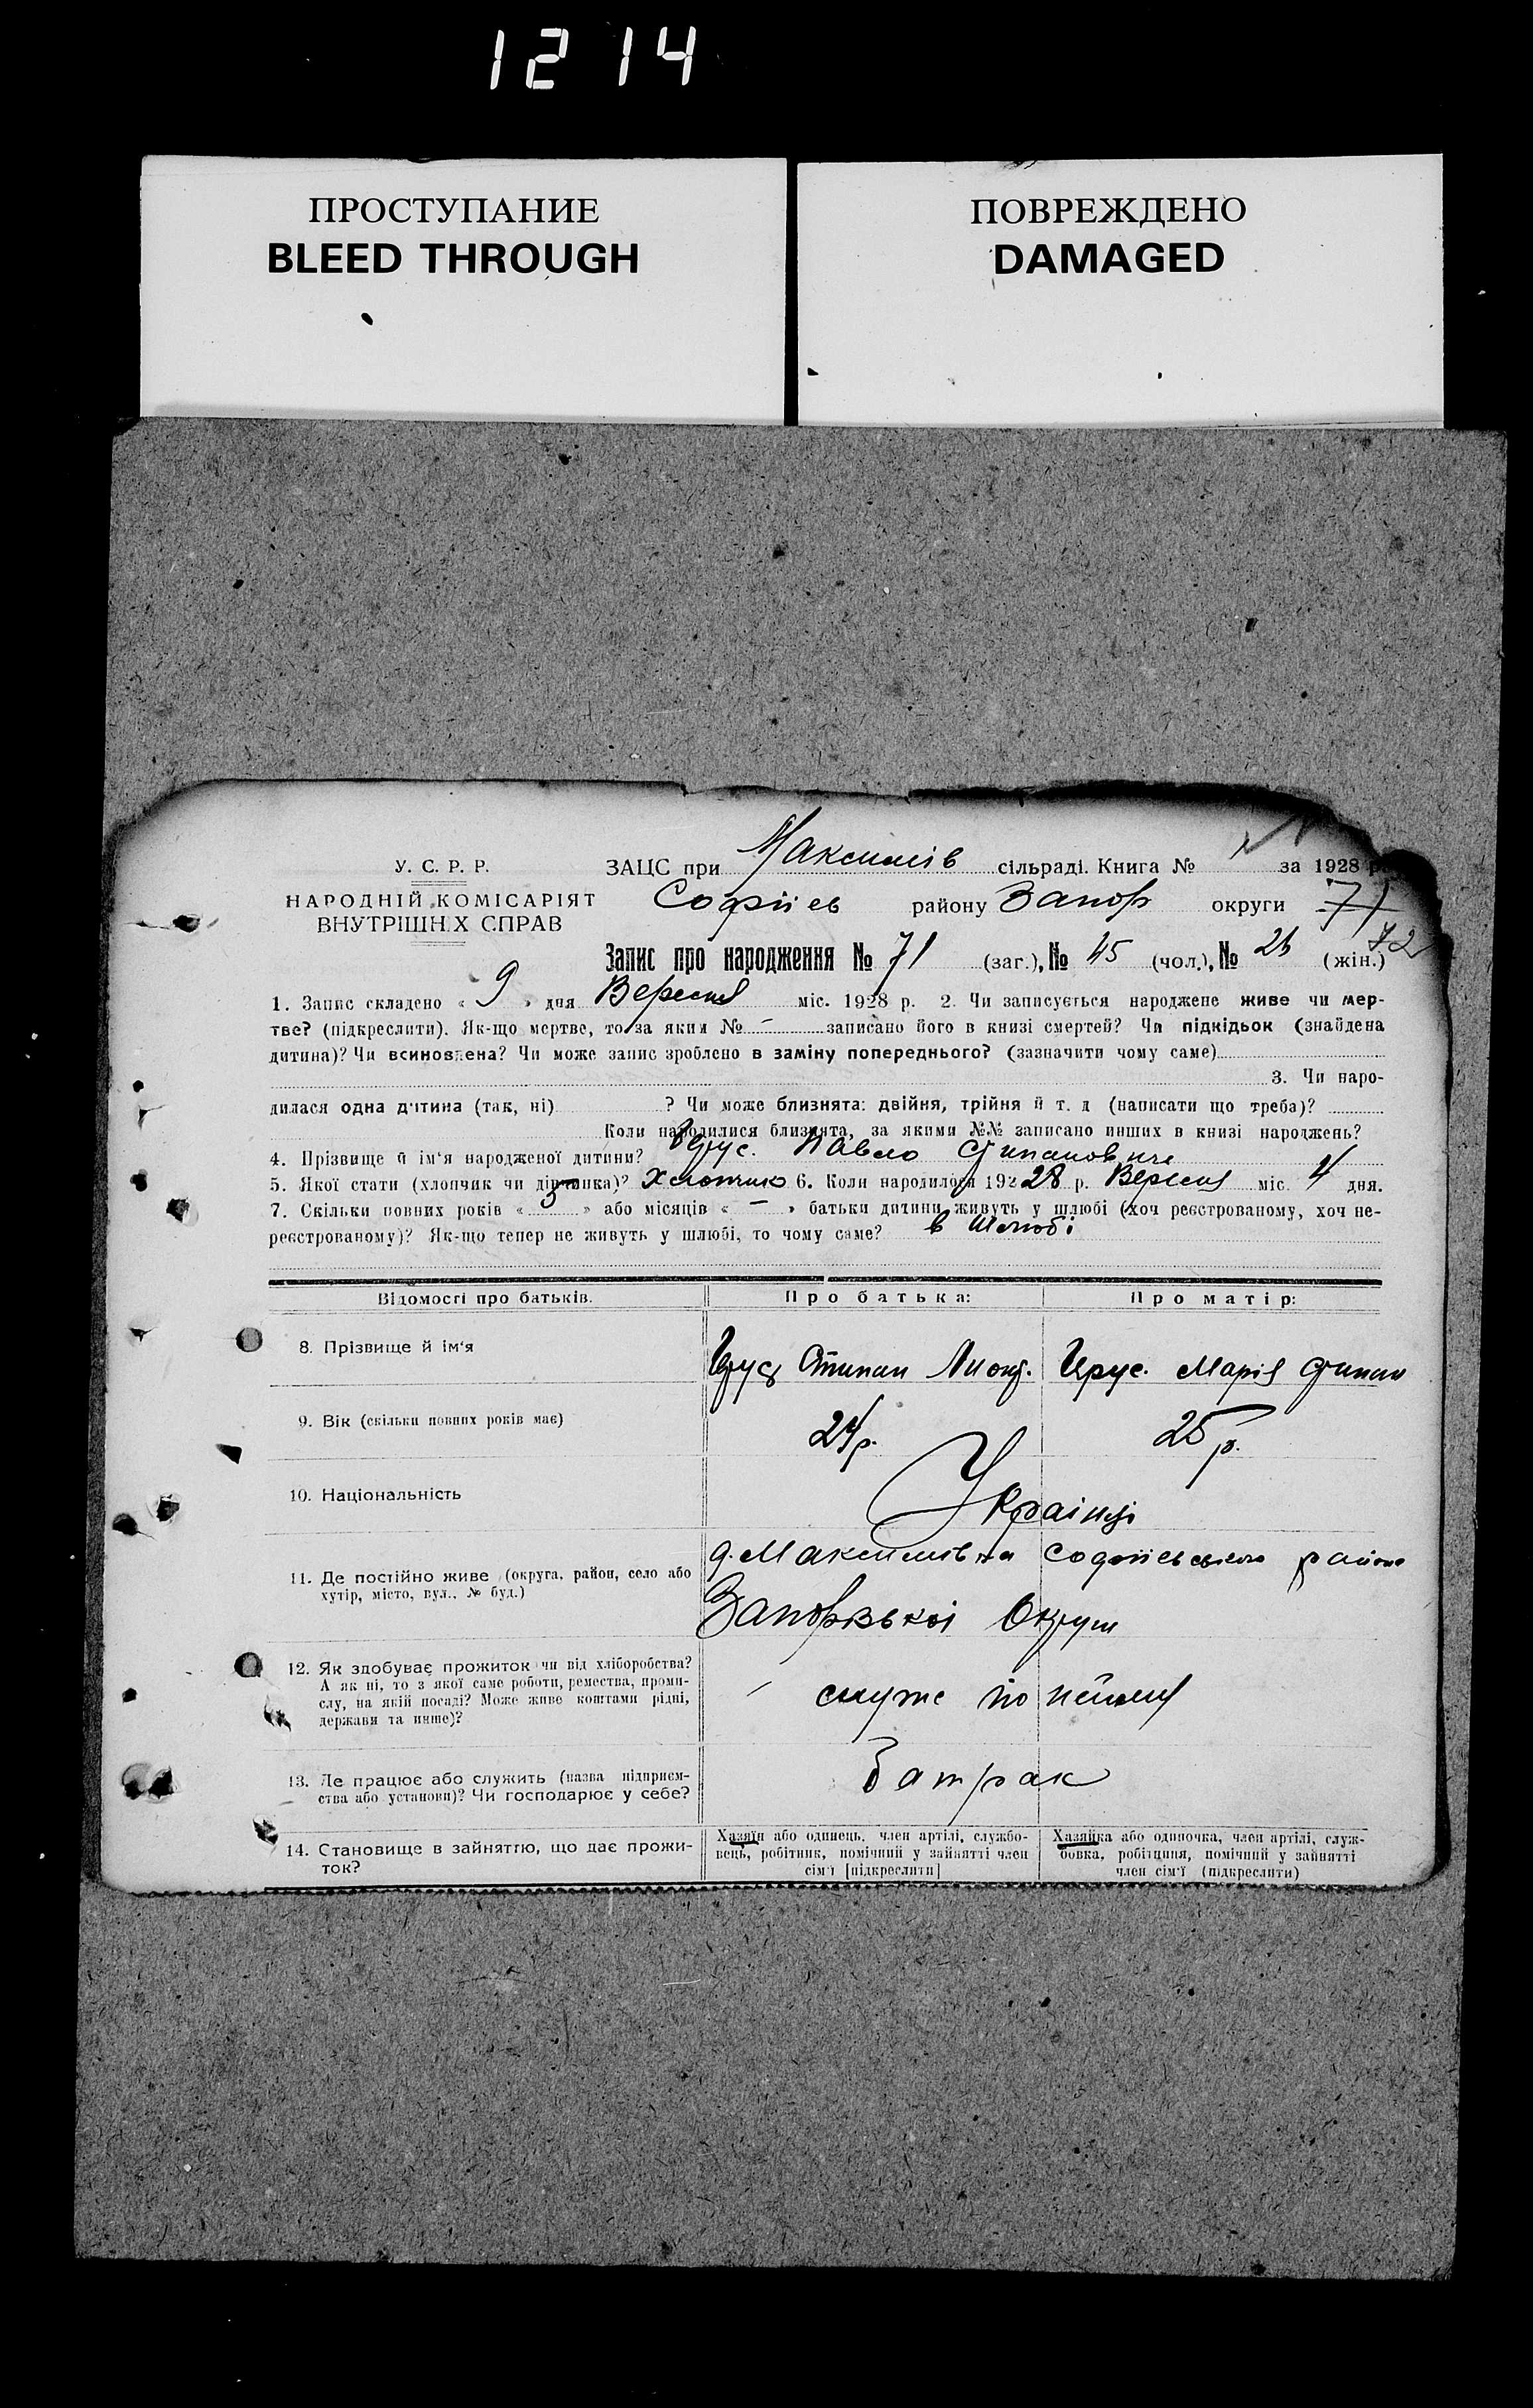 1214
ПРОСТУПАНИЕ
BLEED THROUGH
ПОВРЕЖДЕНО
DAMAGED
У. С. Р. Р.
НАРОДНІЙ КОМІСАРІЯТ
ВНУТРІШНІХ СПРАВ
ЗАЦС при Максимів сільраді. Книга № за 1928 р.
Софіїев району Запор округи 71
72
Запис про народження № 71 (заг.), № 45 (чол.), № 26 (жін.)
1. Запис складено « 9 » дня Вересня міс. 1928 р. 2. Чи записується народжене живе чи мер-
тве? (підкреслити). Як-що мертве, то за яким № - записано його в книзі смертей? Чи підкідьок (знайдена
дитина)? Чи всиновлена? Чи може запис зроблено в заміну попереднього? (зазначити чому саме)
3. Чи наро-
дилася одна дитина (так, ні) ? Чи може близнята: двійня, трійня й т. д (написати що треба)?
Коли народилися близнята, за якими №№ записано инших в книзі народжень?
4. Прізвище й ім'я народженої дитини? Павло
5. Якої стати (хлопчик чи дівчинка)? Хлопчик 6. Коли народилося 192 28 р. Вересня міс. 4 дня.
7. Скільки повних років « 5 » або місяців « — » батьки дитини живуть у шлюбі (хоч реєстрованому, хоч не-
реєстрованому)? Як-що тепер не живуть у шлюбі, то чому саме? в шлюбі
Відомості про батьків. Про батька: Про матір:
8. Прізвище й ім'я
Стипан Марія Стипан
9. Вік (скільки повних років має) 24 р. 25 р.
10. Національність Українці
11. Де постійно живе (округа, район, село або
хутір, місто, вул., № буд.)
д. Максимівка Софіївського району
Запорізької Округи
12. Як здобуває прожиток чи від хліборобства?
А як ні, то з якої саме роботи, ремества, проми-
слу, на якій посаді? Може живе коштами рідні,
держави та инше)?
служе по найму
13. Де працює або служить (назва підприєм-
ства або установи)? Чи господарює у себе?
Батрак
14. Становище в зайняттю, що дає прожи-
ток?
Хазяїн або одинець, член артілі, службо-
вець, робітник, помічний у зайнятті член
сім'ї [підкреслити]
Хазяйка або одиночка, член артілі, служ-
бовка, робітниця, помічний у зайнятті
член сім'ї (підкреслити)